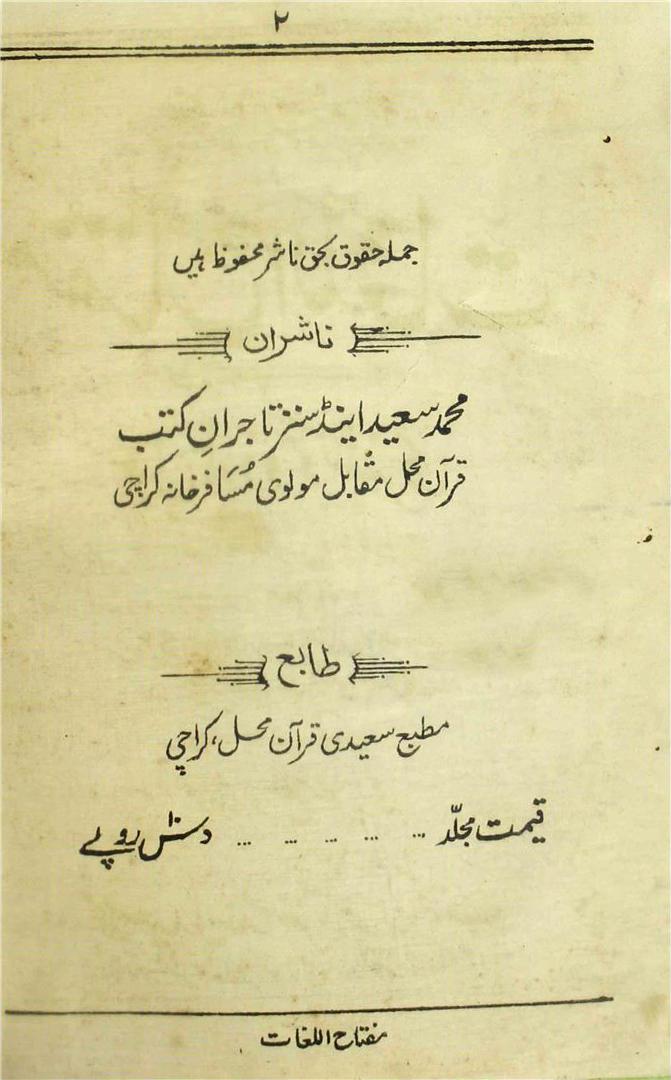 ۲
جملہ حقوق بحق ناشر محفوظ ہیں
ناشران
محمد سعید اینڈ سنز تاجرانِ کتب
قرآن محل مُقابل مولوی مُسَافر خانہ کراچی
طابع
مطبع سعیدی قرآن محل، کراچی
قیمت مجلّد ... ... ... ... ... دس۱۰ روپے
مفتاح اللغات